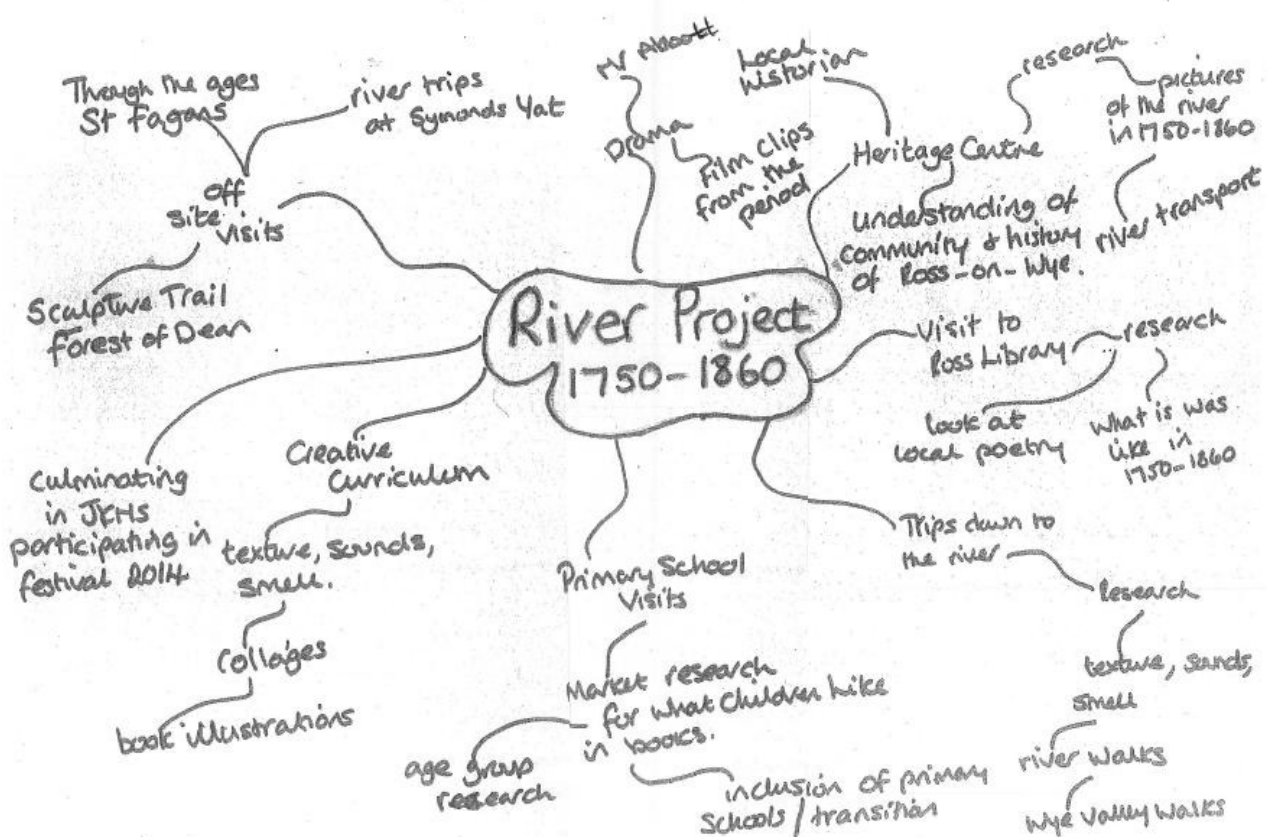 River Project
1750-1860
Through the ages
St Fagans
river trips
at Symonds Yat
off
site
visits
Sculpture Trail
Forest of Dean
Mr Abbott
Drama
Film Clips
from the
period
Local
historian
Heritage Centre
research
pictures
of the river
in 1750-1860
river transport
understanding of
community & history
of Ross-on-Wye.
Visit to
Ross Library
research
look at
local poetry
What is was
like in
1750-1860
Trips down to
the river
Research
texture, sounds,
smell
river walks
Wye Valley Walks
Primary School
Visits
Market research
for what children like
in books.
age group
research
inclusion of primary
schools / transition
Creative
Curriculum
texture, sounds,
smell.
Collages
book illustrations
Culminating
in JKHS
participating in
festival 2014